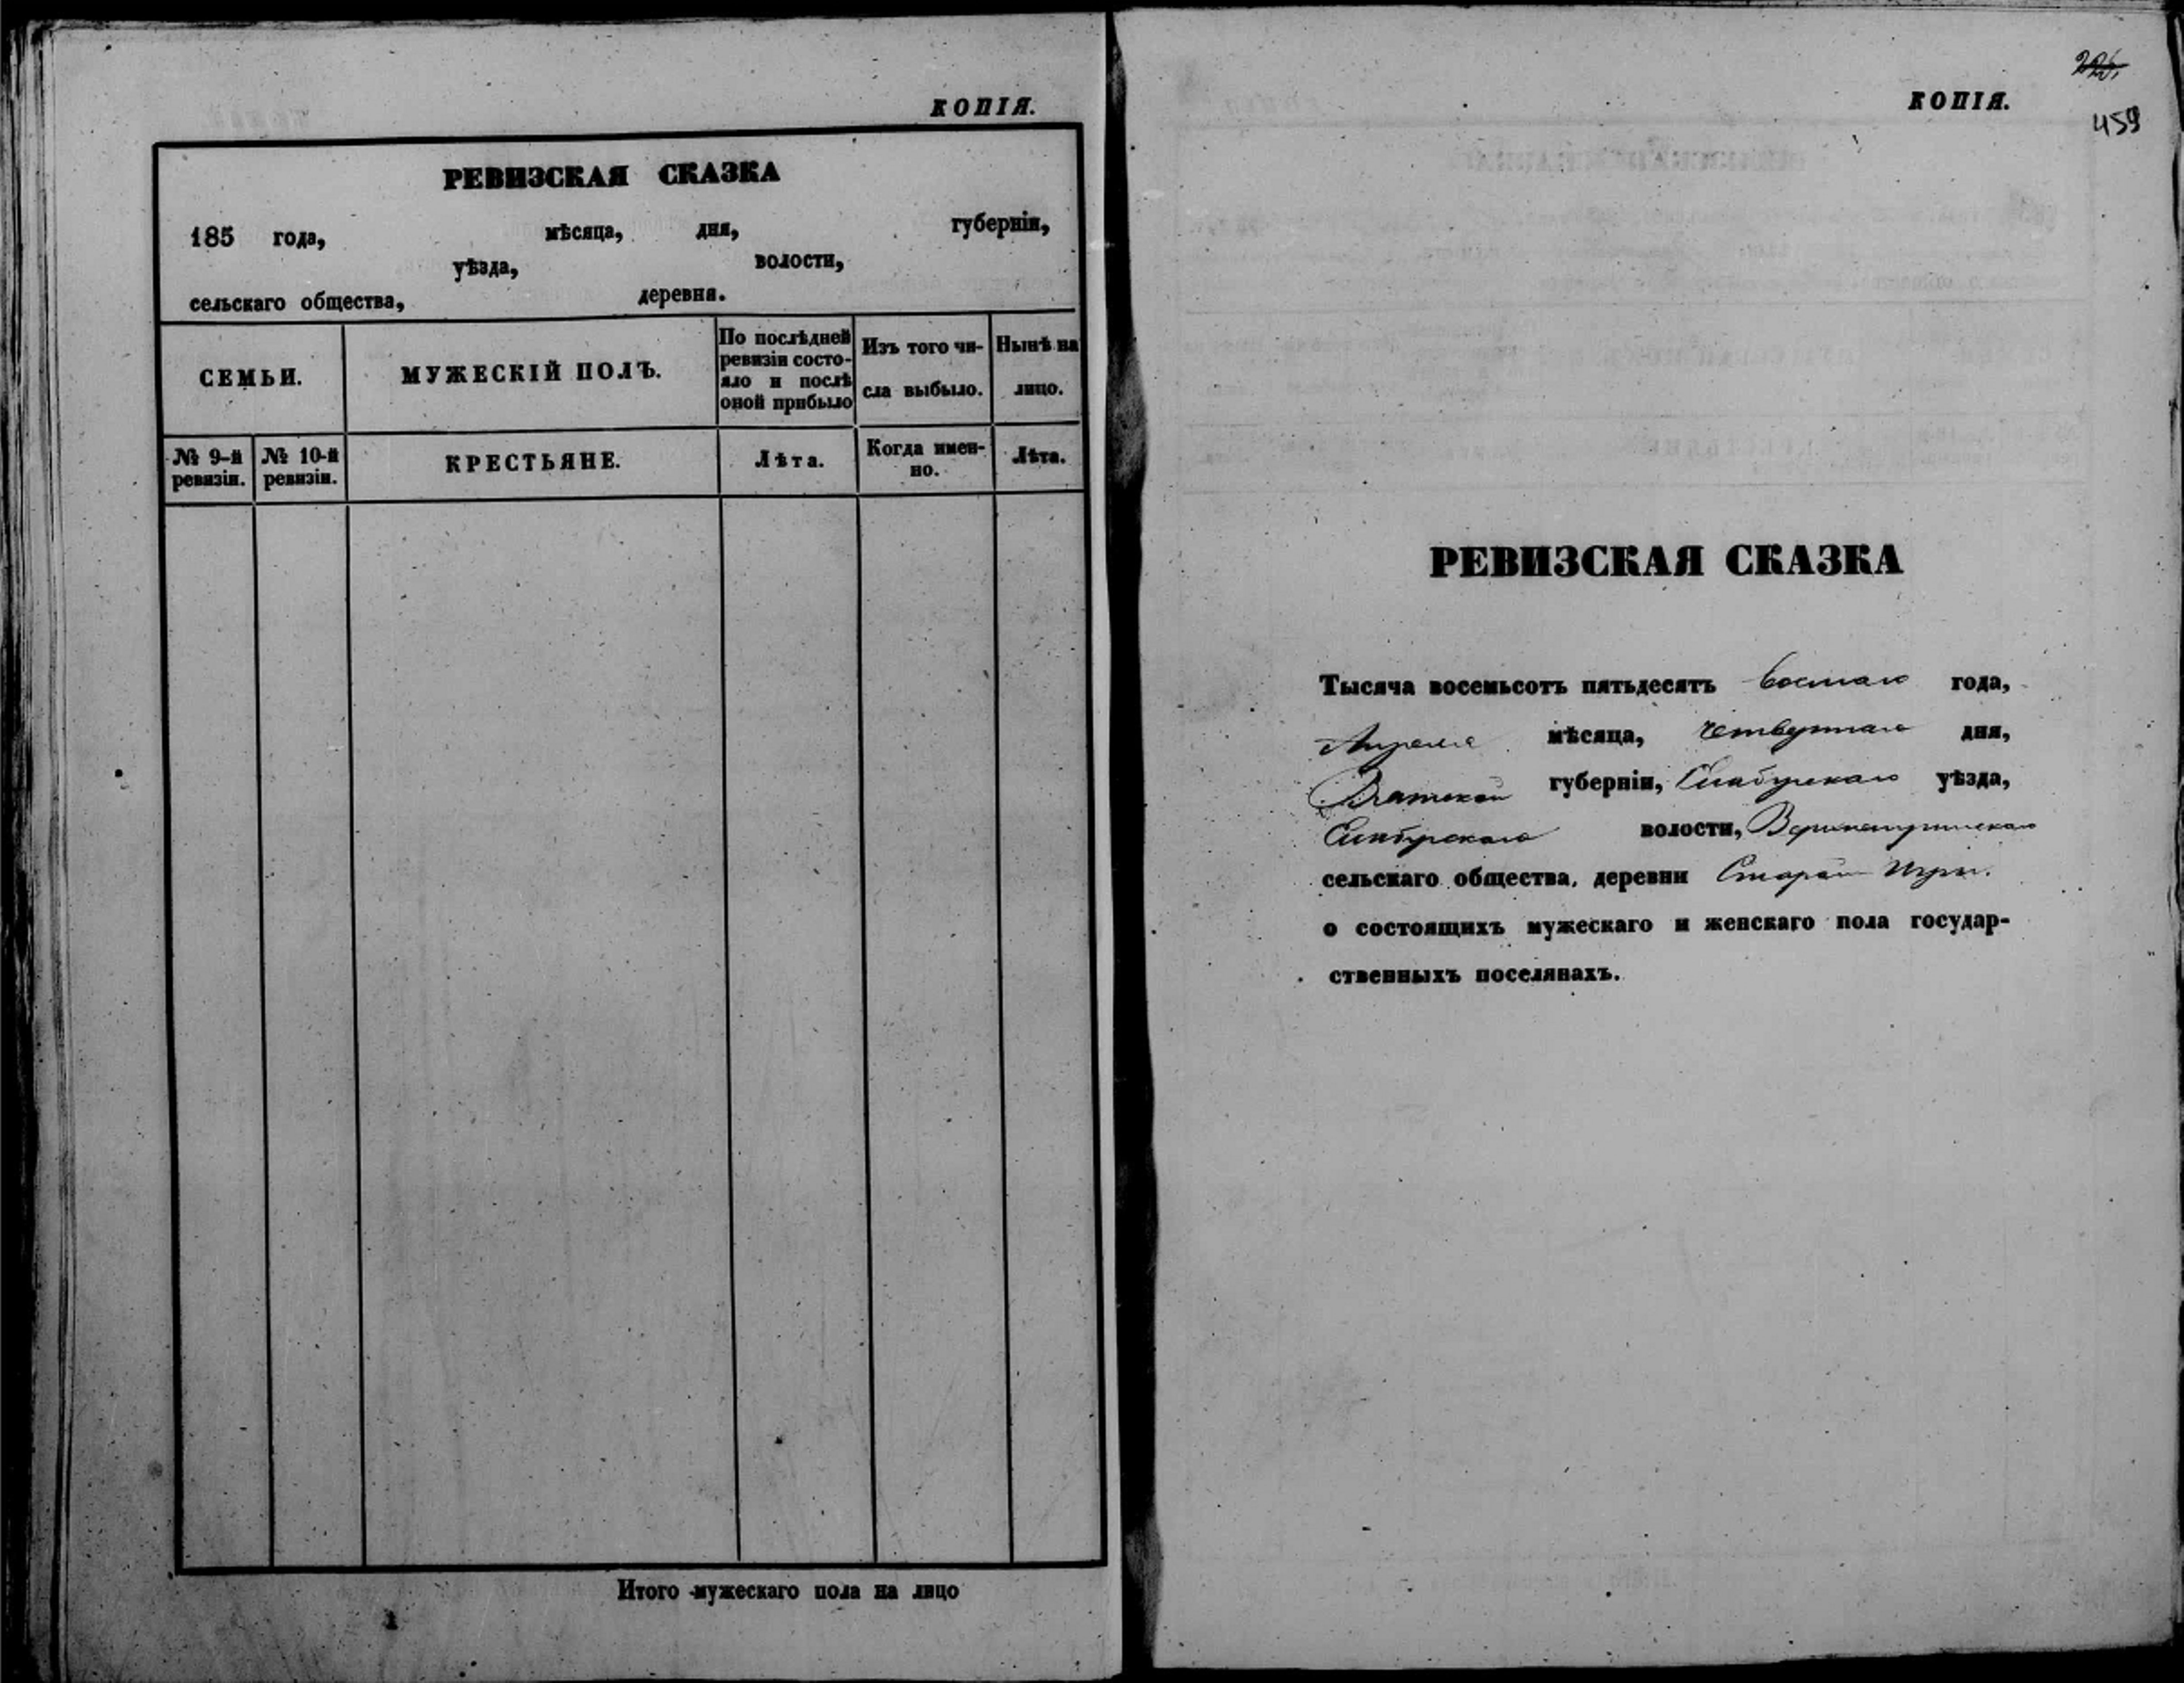 КОПІЯ.
РЕВИЗСКАЯ СКАЗКА
185 года, мѣсяца, дня, губерніи,
уѣзда, волости,
сельскаго общества, деревня.
СЕМЬИ.
МУЖЕСКІЙ ПОЛЪ.
По послѣдней
ревизіи состо-
яло и послѣ
оной прибыло
Изъ того чи-
сла выбыло.
Нынѣ на
лицо.
№ 9-й
ревизіи.
№ 10-й
ревизіи.
КРЕСТЬЯНЕ.
Лѣта.
Когда имен-
но.
Лѣта.
Итого мужескаго пола на лицо
226
КОПІЯ.
459
РЕВИЗСКАЯ СКАЗКА
Тысяча восемьсотъ пятьдесятъ восмаго года,
Апреля мѣсяца, четвертаго дня,
Вятской губерніи, Елабужскаго уѣзда,
волости,
сельскаго общества, деревни Старой
о состоящихъ мужескаго и женскаго пола государ-
ственныхъ поселянахъ.